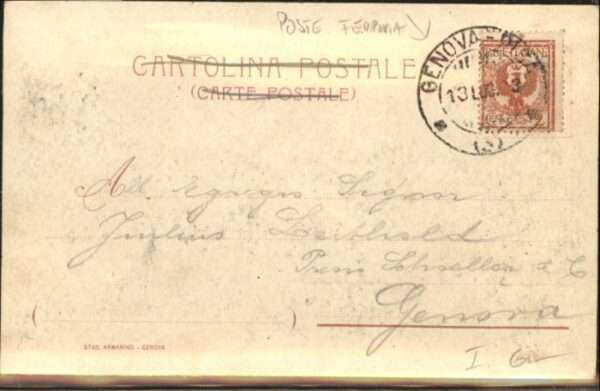 POSTE FERROVIA
CARTOLINA POSTALE
(CARTE POSTALE)
GENOVA
13 LUG
(S)
All Egregio Signor
Julius Leibhold
Presso Schoeller & C
Genova
STAB. ARMANINO - GENOVA
I